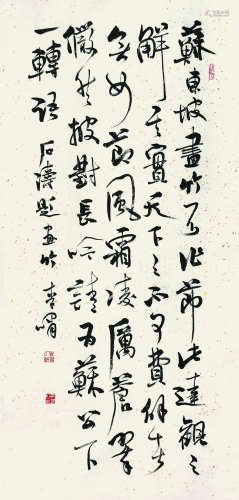 蘇東坡畫竹不作節此達觀之
解其實天下之不可廢者
無如節風霜凌厲蒼翠
儼然披對長吟請為蘇公下
一轉語 石濤題畫竹 李嘯